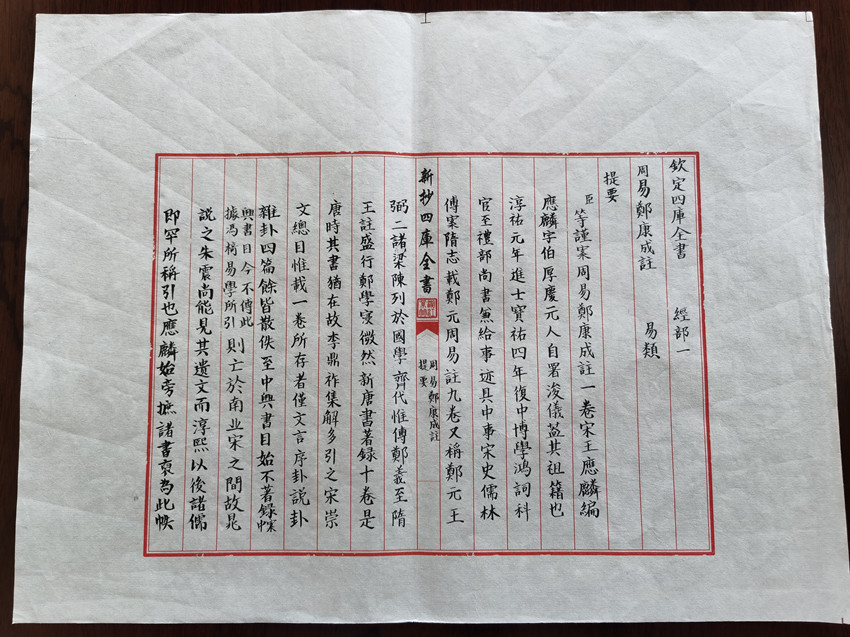 欽定四庫全書 經部一
周易鄭康成註 易類
提要
臣等謹案周易鄭康成註一卷宋王應麟編
應麟字伯厚慶元人自署浚儀蓋其祖籍也
淳祐元年進士寶祐四年復中博學鴻詞科
官至禮部尚書兼給事迹具中事宋史儒林
傳案隋志載鄭元周易註九卷又稱鄭元王
新抄四庫全書
周易鄭康成註
提要
弼二諸梁陳列於國學齊代惟傳鄭義至隋
王註盛行鄭學寖微然新唐書著錄十卷是
唐時其書猶在故李鼎祚集解多引之宋崇
文總目惟載一卷所存者僅文言序卦說卦
雜卦四篇餘皆散佚至中興書目始不著錄案中
興書目今不傳此
據馮椅易學所引則亡於南北宋之間故晁
說之朱震尚能見其遺文而淳熙以後諸儒
即罕所稱引也應麟始旁摭諸書裒為此帙